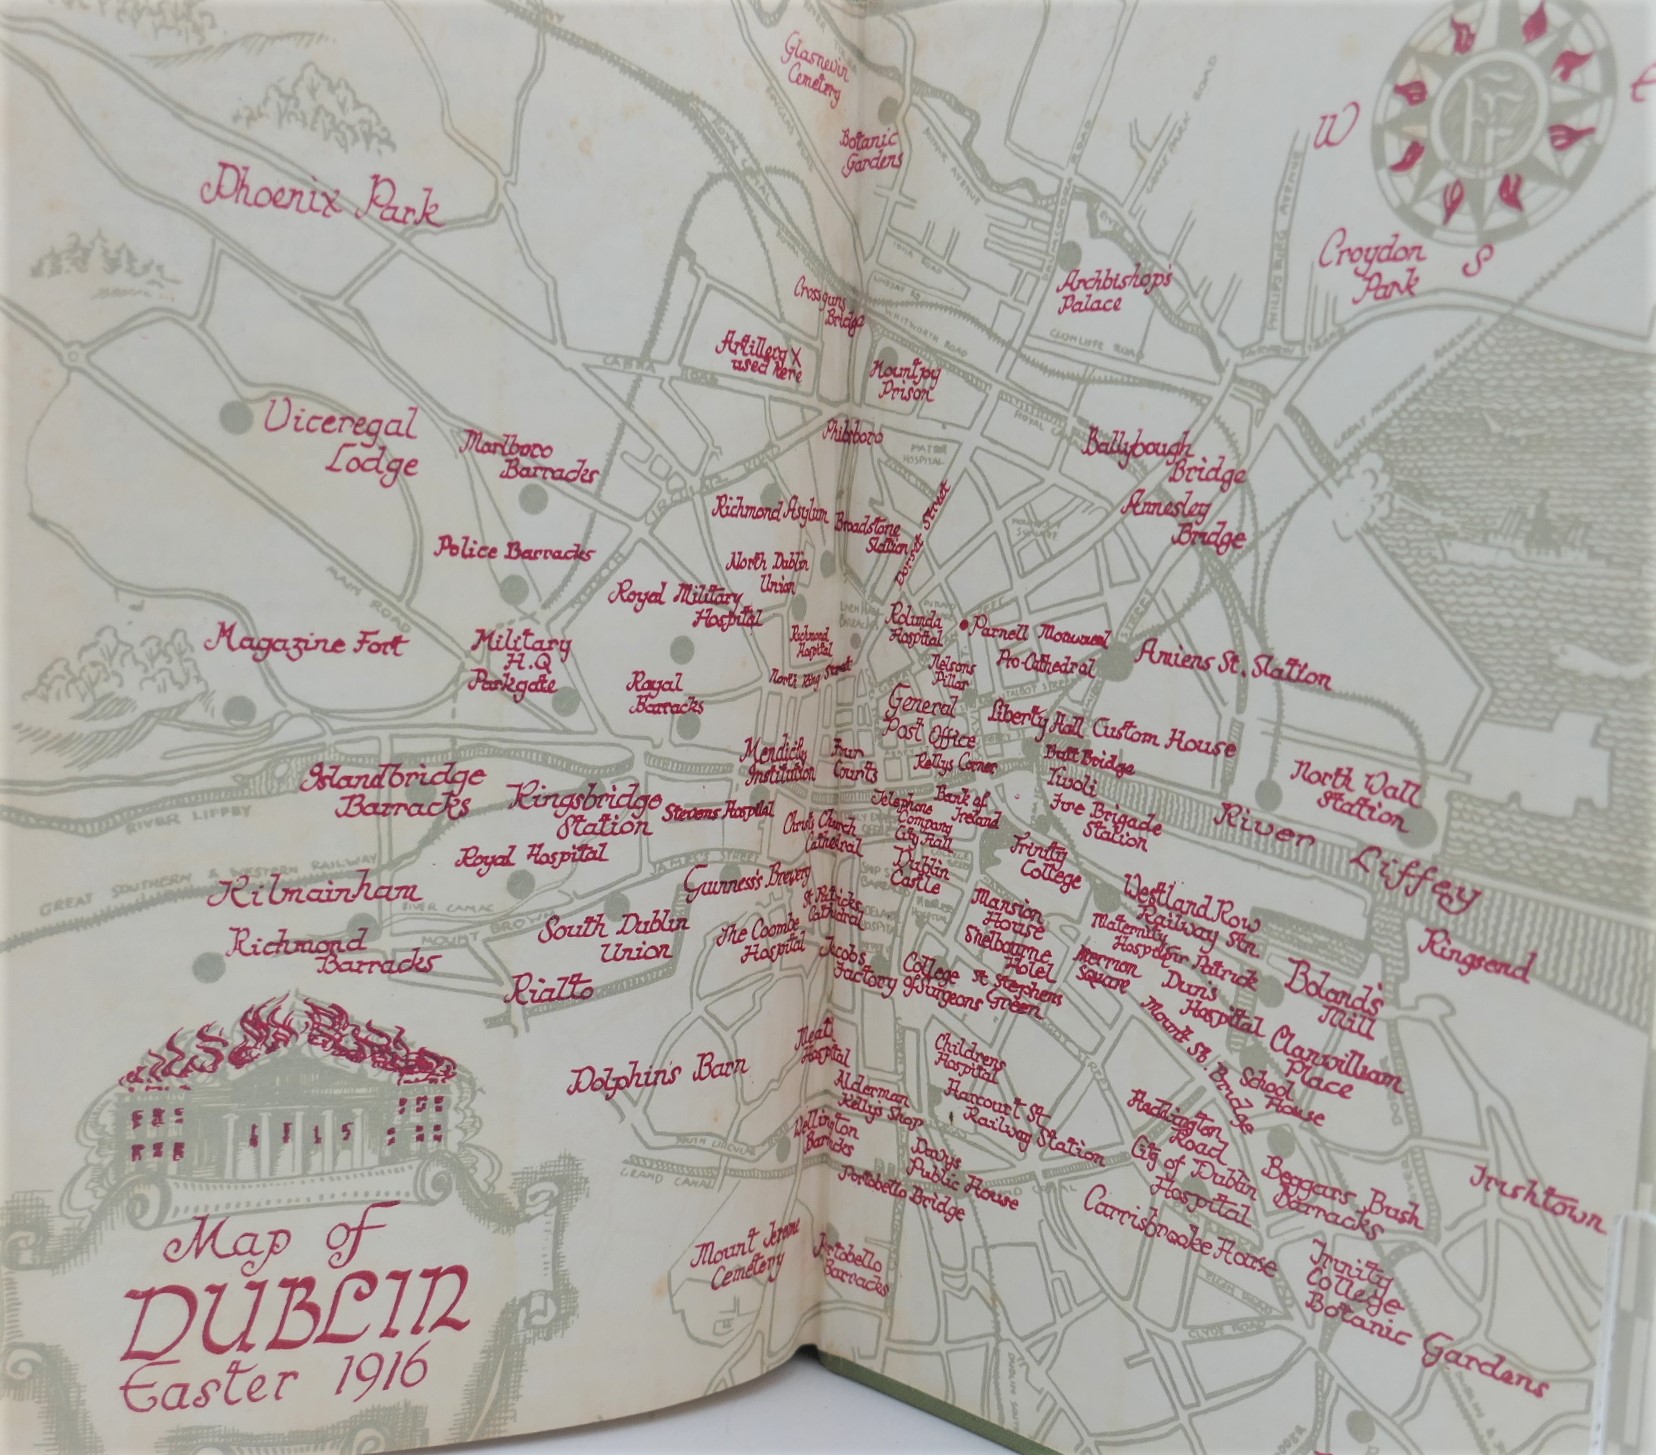 Glasnevin
Cemetery
Botanic
Gardens
W
E
S
Phoenix Park
Croydon
Park
Archbishop's
Palace
Crossguns
Bridge
WHITWORTH ROAD
CLONLIFFE ROAD
Artillery X
used here
CABRA
Mountjoy
Prison
Viceregal
Lodge
Marlboro
Barracks
Phibsboro
MATER
HOSPITAL
Ballybough
Bridge
Annesley
Bridge
GREAT NORTHERN
Richmond Asylum
Broadstone
Station
Dorset Street
Police Barracks
North Dublin
Union
MAIN ROAD
Royal Military
Hospital
Rotunda
Hospital
Parnell Monument
Magazine Fort
Military
H.Q
Parkgate
Richmond
Hospital
Nelsons
Pillar
Pro-Cathedral
TALBOT STREET
Amiens St. Station
Royal
Barracks
North King Street
General
Post Office
Liberty Hall
Custom House
Mendicity
Institution
Four
Courts
Kellys Corner
Butt Bridge
Islandbridge
Barracks
Kingsbridge
Station
Stevens Hospital
Tivoli
North Wall
Station
RIVER LIFFEY
Christ Church
Cathedral
Telephone
Company
Bank of
Ireland
Fire Brigade
Station
River Liffey
City Hall
Royal Hospital
JAMES'S STREET
Dublin
Castle
Trinity
College
GREAT SOUTHERN & WESTERN RAILWAY
Kilmainham
RIVER CAMAC
Guinness's Brewery
St Patricks
Cathedral
Mansion
House
Westland Row
Railway Stn.
MOUNT BROWN
South Dublin
Union
The Coombe
Hospital
Shelbourne
Hotel
Maternity
Hospital
Sir Patrick
Dun's
Hospital
Ringsend
Richmond
Barracks
Jacobs
Factory
College
of Surgeons
St Stephens
Green
Merrion
Square
Boland's
Mill
Rialto
Mount St.
Bridge
Clanwilliam
Place
Meath
Hospital
Childrens
Hospital
School
House
Dolphin's Barn
Alderman
Kelly's Shop
Harcourt St
Railway Station
Haddington
Road
Wellington
Barracks
Davys
Public House
City of Dublin
Hospital
Beggars Bush
Barracks
Irishtown
GRAND CANAL
Portobello Bridge
Carrisbrooke House
Mount Jerome
Cemetery
Portobello
Barracks
Trinity
College
Botanic Gardens
CLYDE ROAD
Map of
DUBLIN
Easter 1916